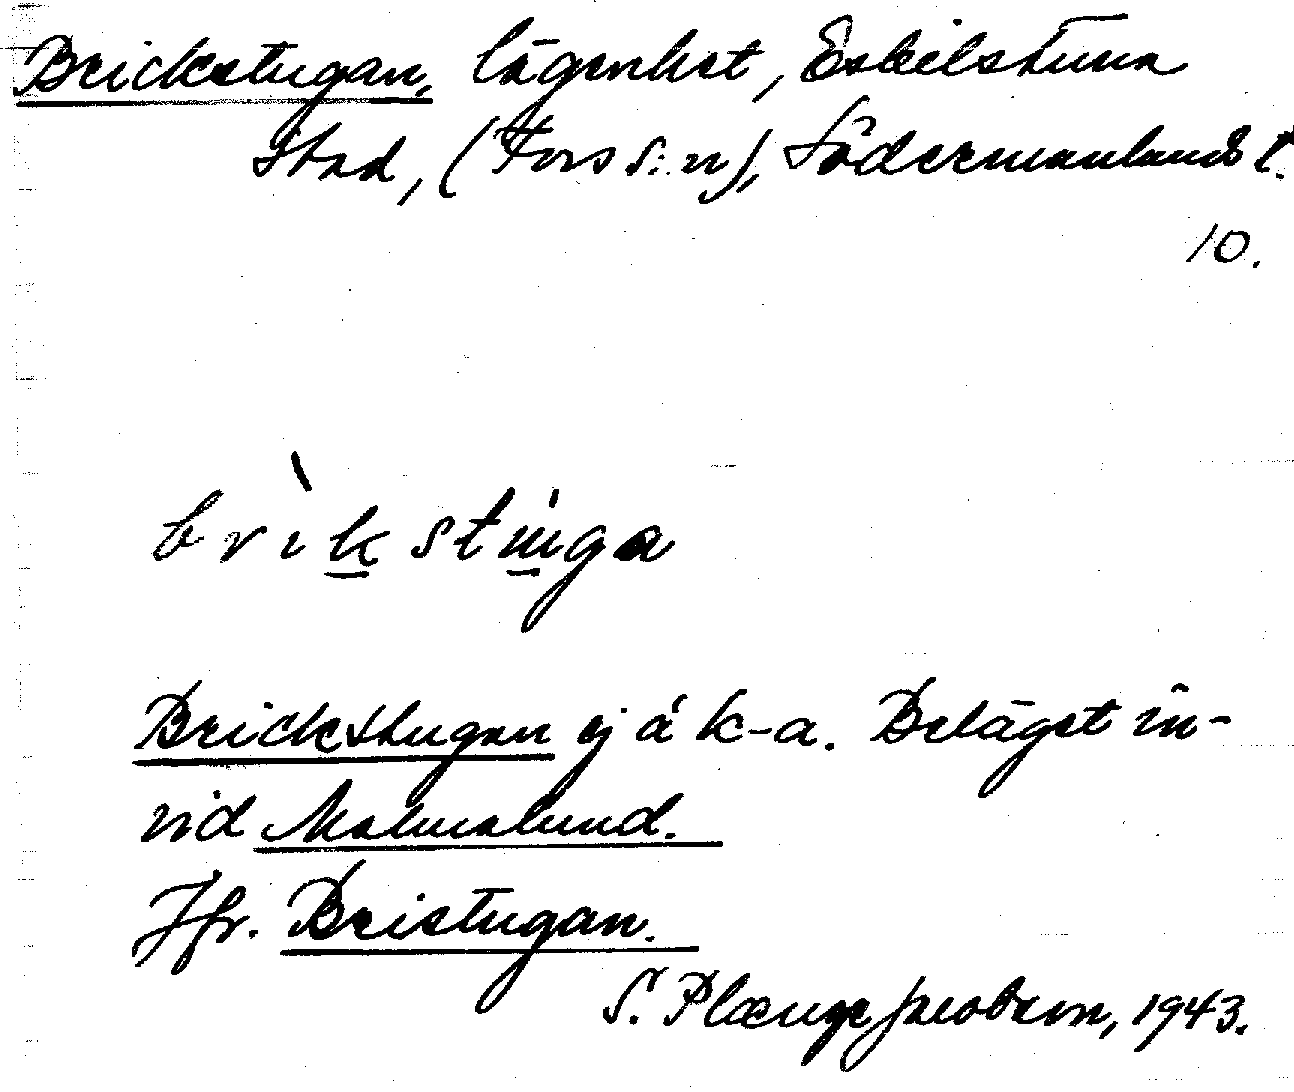 Brickstugan, lägenhet, Eskilstuna
stad, (Fors s:n), Södermanlands l.
10.
brìkstùga
Brickstugan ej å k-a. Beläget in-
vid Malmalund.
Jfr. Bristugan.
S. Plænge Jacobson, 1943.